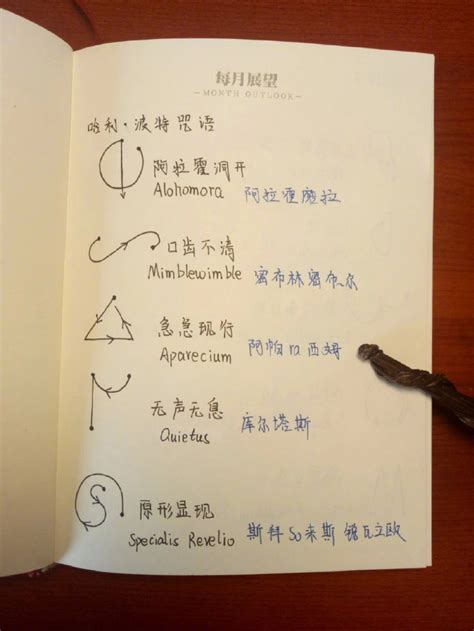 每月展望
— MONTH OUTLOOK —
哈利·波特咒语
阿拉霍洞开
Alohomora 阿拉霍魔拉
口齿不清
Mimblewimble 密布林密布尔
急急现行
Aparecium 阿帕ra西姆
无声无息
Quietus 库尔塔斯
原形显现
Specialis Revelio 斯拜So来斯 锐瓦立欧